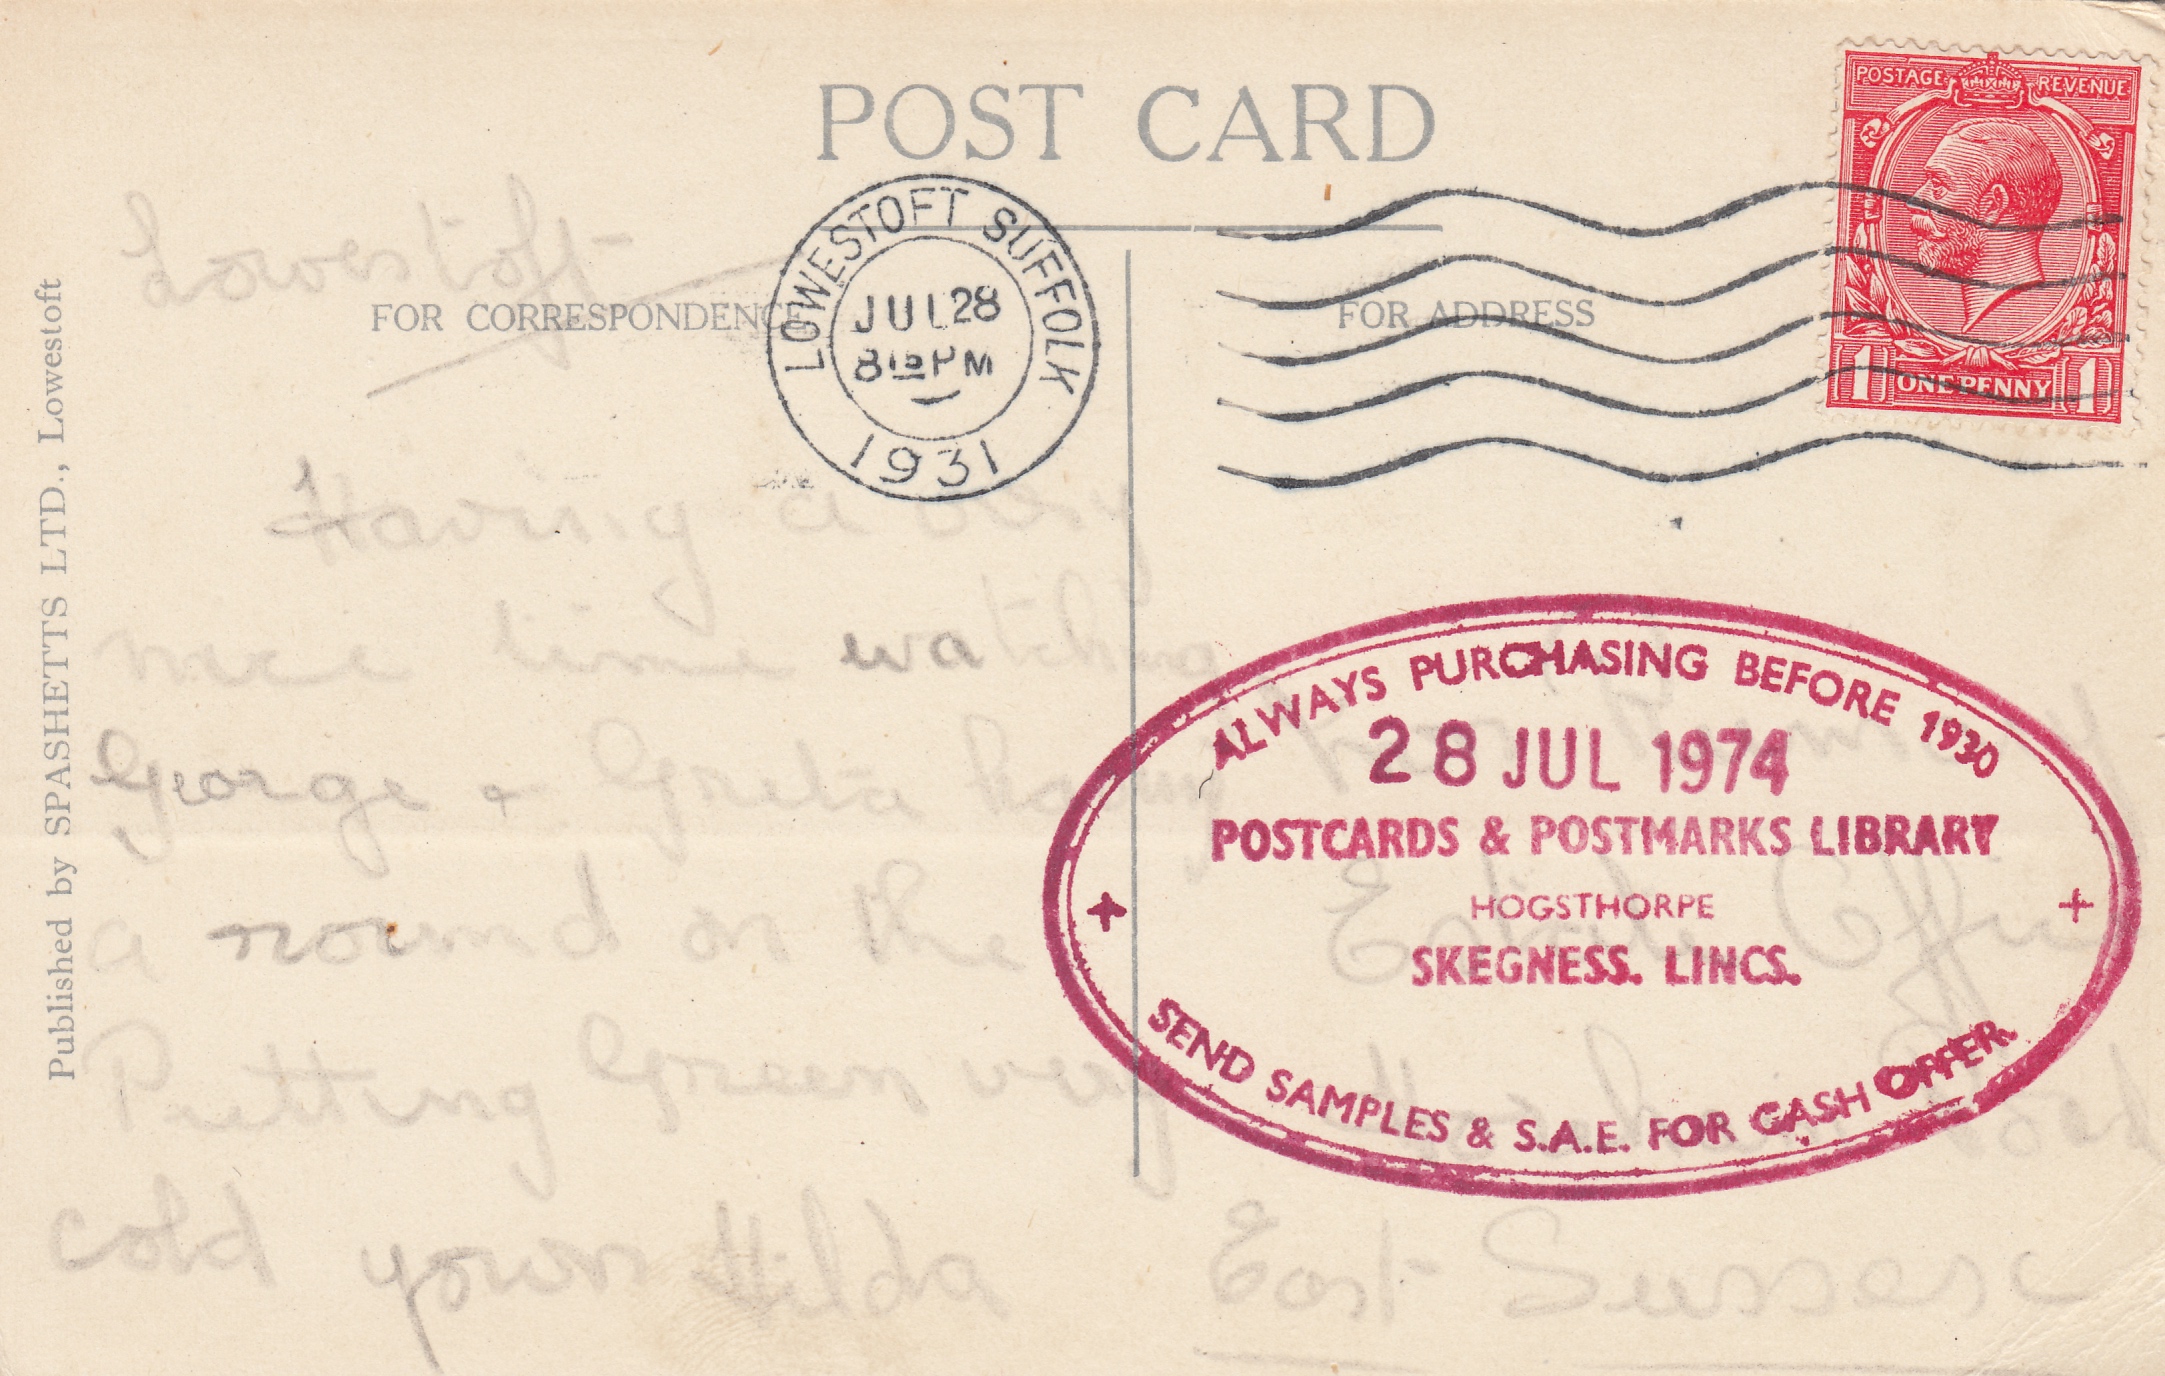 POST CARD
POSTAGE REVENUE
1 ONE PENNY 1
LOWESTOFT SUFFOLK
JUL 28
8 15 PM
1931
FOR CORRESPONDENCE
FOR ADDRESS
Published by SPASHETTS LTD., Lowestoft
Lowestoft
Having a very
nice time watching
George & Greta having
a round on the
Putting Green very
cold yours Hilda
ALWAYS PURCHASING BEFORE 1930
28 JUL 1974
POSTCARDS & POSTMARKS LIBRARY
HOGSTHORPE
SKEGNESS. LINCS.
SEND SAMPLES & S.A.E. FOR CASH OFFER.
Estate Office
Road
East Sussex